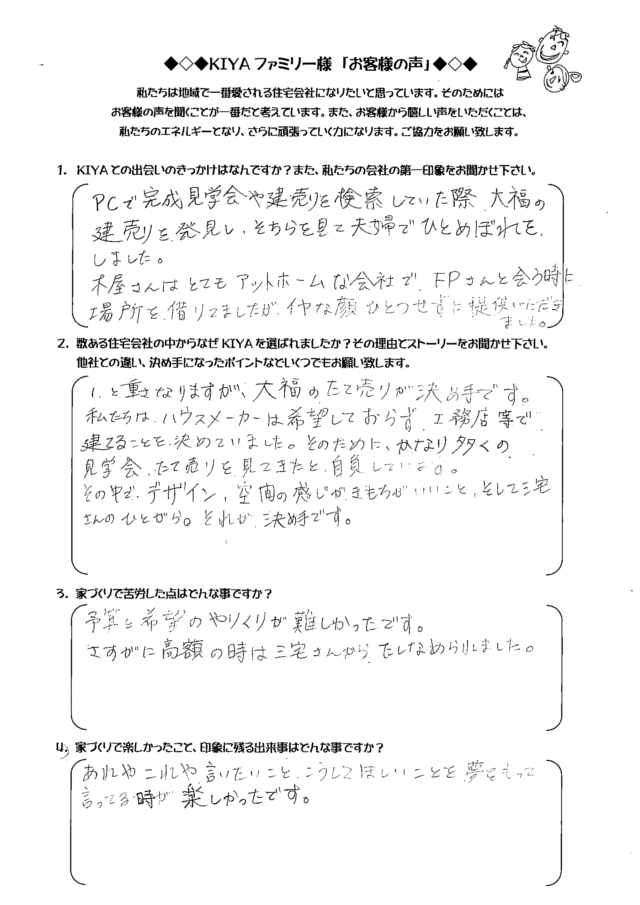 ◆◇◆KIYAファミリー様「お客様の声」◆◇◆
私たちは地域で一番愛される住宅会社になりたいと思っています。そのためには
お客様の声を聞くことが一番だと考えています。また、お客様から嬉しい声をいただくことは、
私たちのエネルギーとなり、さらに頑張っていく力になります。ご協力をお願い致します。
1. KIYAとの出会いのきっかけはなんですか？また、私たちの会社の第一印象をお聞かせ下さい。
PCで完成見学会や建売りを検索していた際、大福の
建売りを発見し、そちらを見て夫婦でひとめぼれを
しました。
木屋さんはとてもアットホームな会社で、FPさんと会う時に
場所を借りてましたが、イヤな顔ひとつせずに提供いただき
ました。
2. 数ある住宅会社の中からなぜKIYAを選ばれましたか？その理由とストーリーをお聞かせ下さい。
他社との違い、決め手になったポイントなどいくつでもお願い致します。
1.と重さなりますが、大福のたて売りが決め手です。
私たちは、ハウスメーカーは希望しておらず、工務店等で
建てることを決めていました。そのために、かなり多くの
見学会、たて売りを見てきたと自負しています。
その中で、デザイン、空間の感じがきもちがいいこと、そして三宅
さんのひとがら。それが決め手です。
3. 家づくりで苦労した点はどんな事ですか？
予算と希望のやりくりが難しかったです。
さすがに高額の時は三宅さんから、たしなめられしました。
4. 家づくりで楽しかったこと、印象に残る出来事はどんな事ですか？
あれやこれや言いたいこと、こうしてほしいことを夢をもって
言ってる時が楽しかったです。